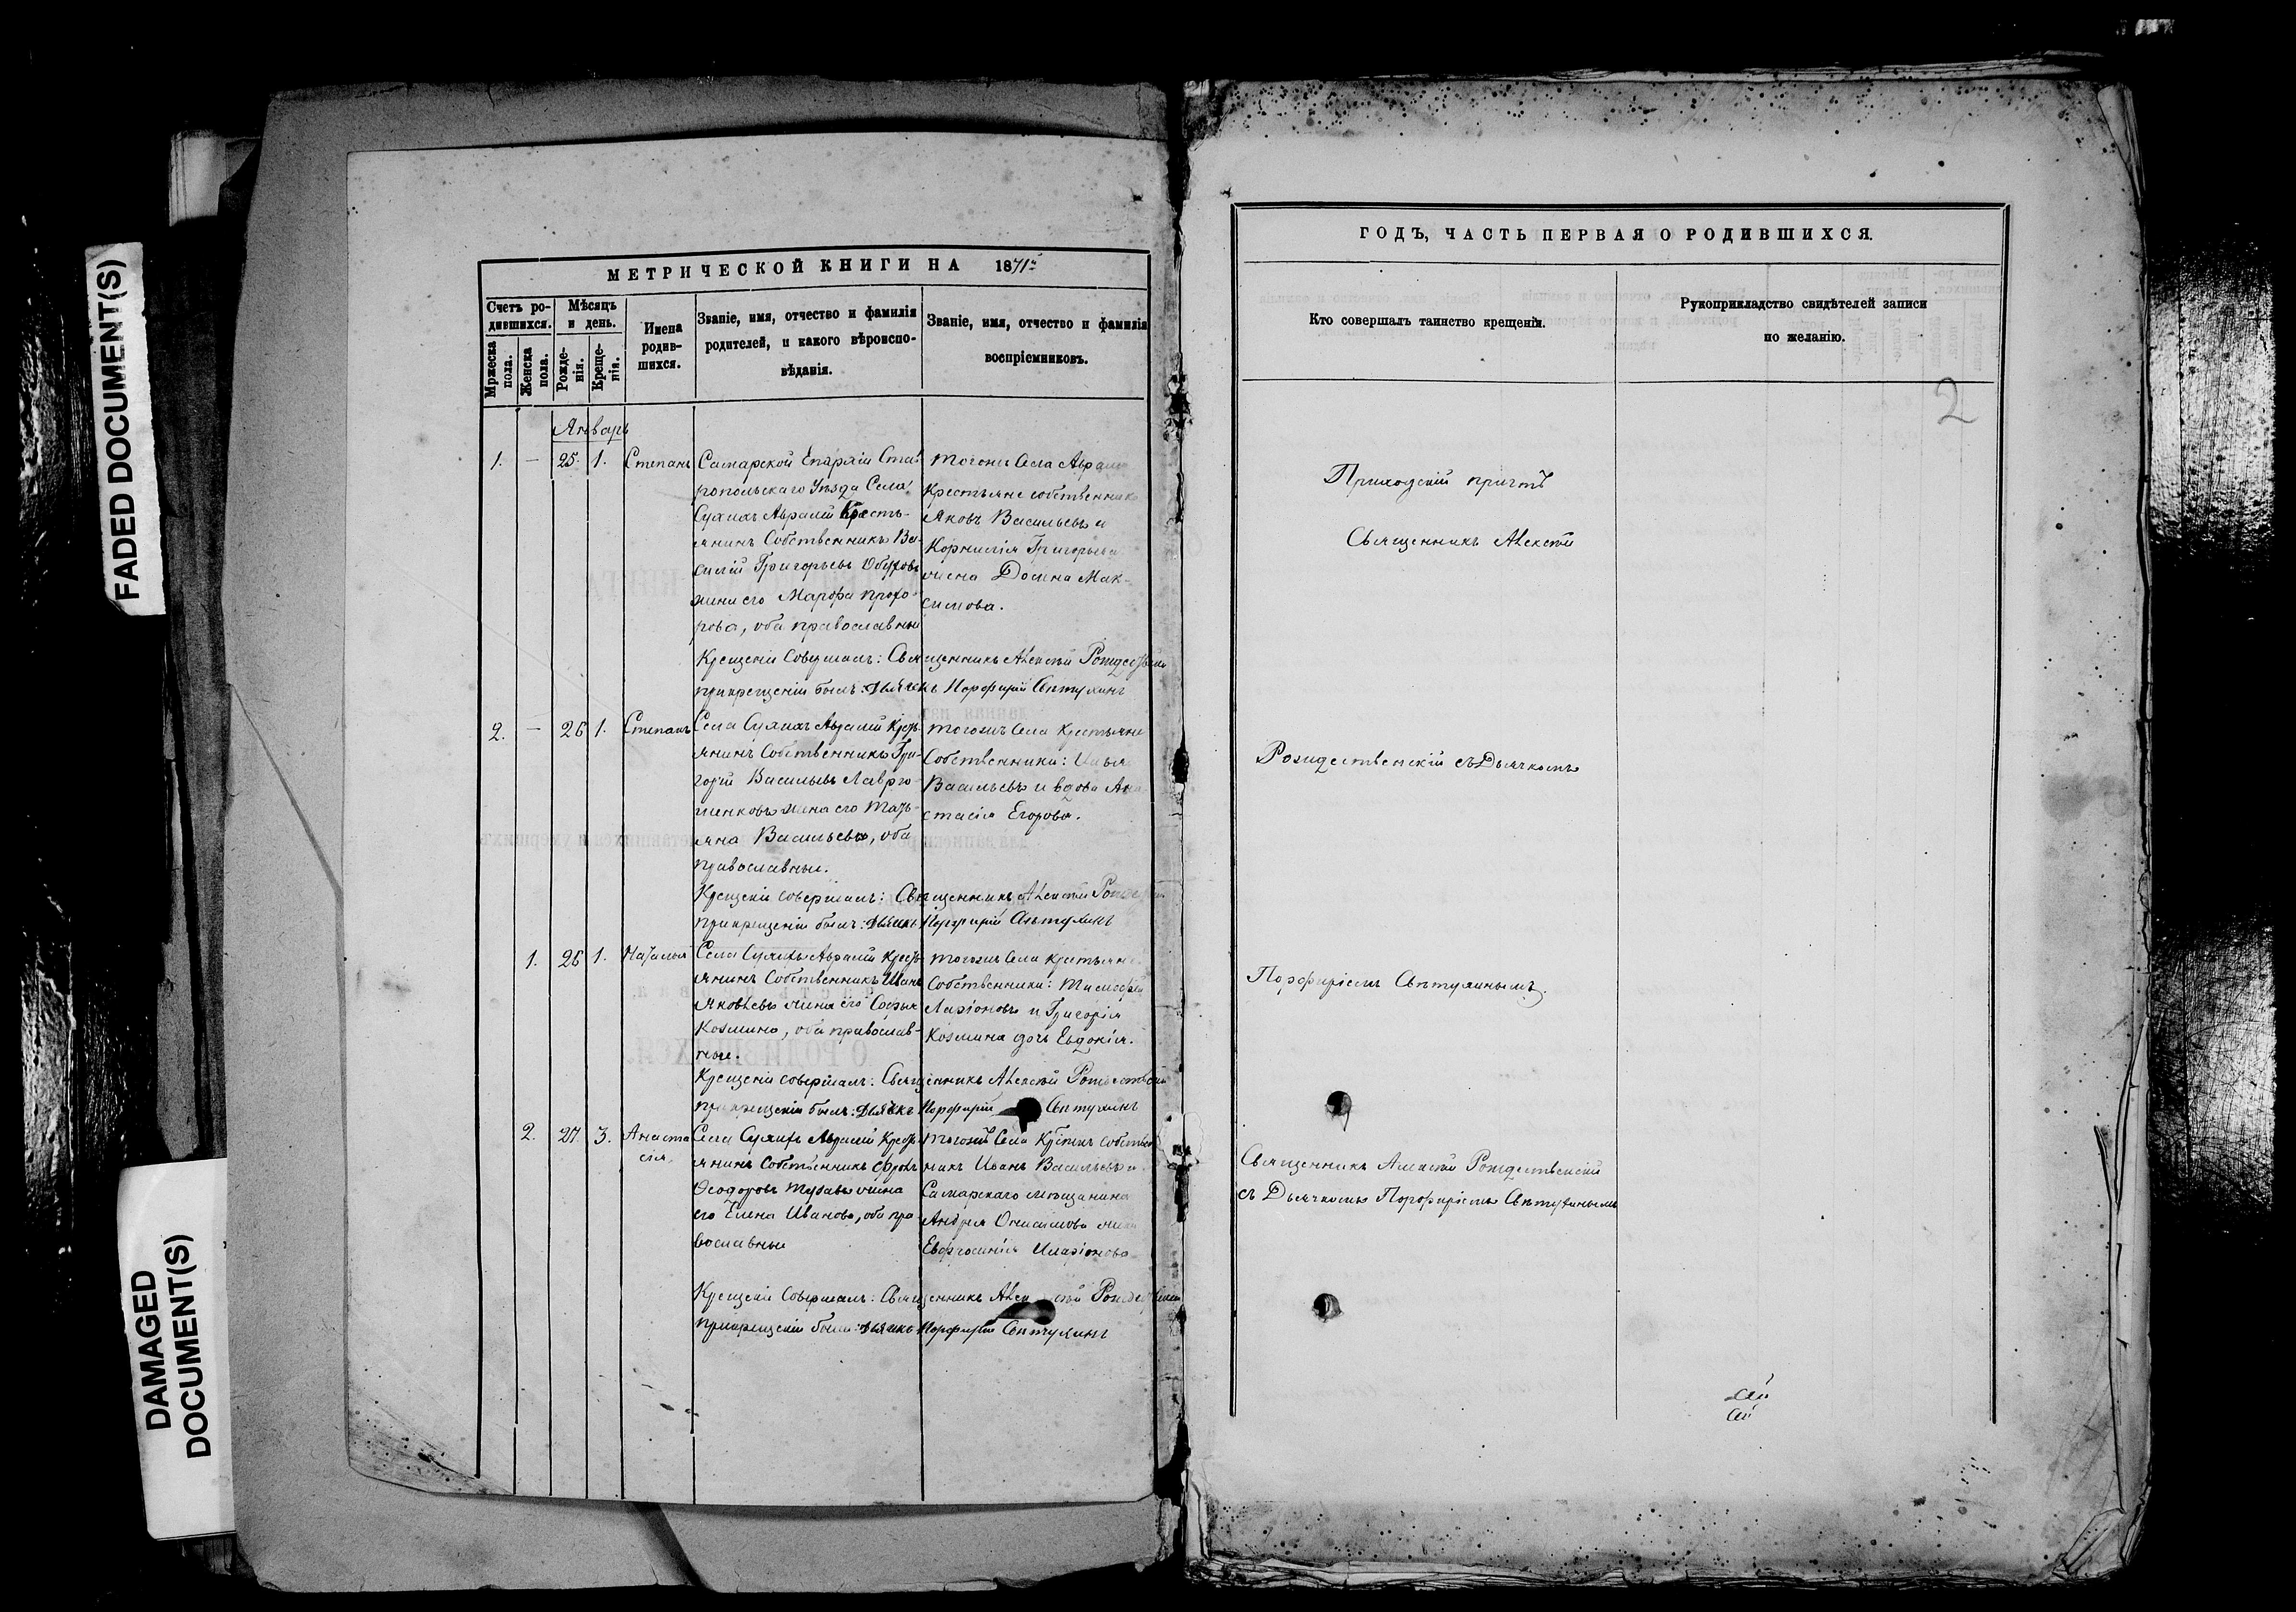 FADED DOCUMENT(S)
DAMAGED
DOCUMENT(S)
МЕТРИЧЕСКОЙ КНИГИ НА 1871й
Счетъ ро-
дившихся.
Мѣсяцъ
и день.
Имена
родив-
шихся.
Званіе, имя, отчество и фамилія
родителей, и какого вѣроиспо-
вѣданія.
Званіе, имя, отчество и фамилія
воспріемниковъ.
Мужеска
пола.
Женска
пола.
Рожде-
нія.
Креще-
нія.
Январь
1. — 25. 1. Степанъ
Самарской Епархіи Ста-
вропольскаго Уѣзда Села
Сухихъ Авралей Кресть-
янинъ Собственникъ Ва-
силій Григорьевъ
жена его Марфа Прохо-
рова, оба православные
Тогоже Села
Крестьяне собственники
Яковъ Васильевъ и
Григорьева
жена Домна Мак-
симова.
Крещеніе Совершалъ: Священникъ Алексѣй Рождественскій
при крещеніи былъ: Дьячекъ Порфирій
2. — 26 1. Степанъ
Села Сухихъ Авралей Кресть-
янинъ Собственникъ Гри-
горій Васильевъ
жена его Тать-
яна Васильева, оба
православные.
Тогоже Села Крестьяне
Собственники: Илья
Васильевъ и вдова Ана-
стасія Егорова.
Крещеніе совершалъ: Священникъ Алексѣй
при крещеніи былъ: Дьячекъ Порфирій
1. 26 1. Наталья
Села Сухихъ Авралей Кресть-
янинъ Собственникъ Иванъ
Яковлевъ жена его Софья
Козмина, оба православ-
ные.
Тогоже Села Крестьяне
Собственники: Тимофей
Ларіоновъ и Григорія
Козмина дочь Евдокія.
Крещеніе совершалъ: Священникъ Алексѣй Рождественскій
при крещеніи былъ: Дьячекъ Порфирій
2. 27. 3. Анаста
сія
Села Сухихъ Авралей Кресть-
янинъ Собственникъ
Ѳеодоровъ жена
его Елена Иванова, оба пра-
вославные
Тогоже Села Собствен-
никъ Иванъ Васильевъ и
Самарскаго мѣщанина
Андрея Онисимова жена
Евфросинія Иларіонова
Крещеніе Совершалъ: Священникъ Алексѣй Рождественскій
при крещеніи былъ: Дьячекъ Порфирій
ГОДЪ, ЧАСТЬ ПЕРВАЯ О РОДИВШИХСЯ.
Кто совершалъ таинство крещенія.
Рукоприкладство свидѣтелей записи
по желанію.
2
Приходскій причтъ
Священникъ Алексѣй
Рождественскій съ Дьячкомъ
Порфиріемъ
Священникъ Алексѣй Рождественскій
съ Дьячкомъ Порфиріемъ